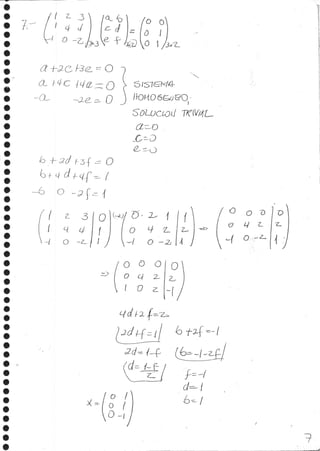 7.- (1 2 3 / 1 4 4 / -1 0 -2)3x3 (a b / c d / e f)3x2 = (0 0 / 0 1 / 0 1)3x2
a+2c+3e=0
a+4c+4e=0 } SISTEMA
-a -2e=0 HOMOGENEO;
SOLUCION TRIVIAL
a=0
c=0
e=0
b+2d+3f=0
b+4d+4f=1
-b 0 -2f=1
(1 2 3|0 / 1 4 4|1 / -1 0 -2|1) (0 2 1|1 / 0 4 2|2 / -1 0 -2|1) => (0 0 0|0 / 0 4 2|2 / -1 0 -2|1)
=> (0 0 0|0 / 0 4 2|2 / 1 0 2|-1)
4d+2f=2
2d+f=1 b+2f=-1
2d=1-f b=-1-2f
d=1-f/2 f=-1
d=1
x=(0 1 / 0 1 / 0 -1) b=1
7